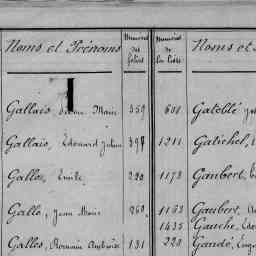 Noms et Prénoms Numéros des folios Numéros de la liste Noms et
Gallais, Marie 359 601 Gateblé
Gallais, Édouard Julien 397 1211 Gatichel,
Gallo, Emile 220 1173 Gaubert,
Gallo, Jean Marie 260 1163 Gaubert,
1435 Gauche,
Galles, Romain Ambroise 131 220 Gaudé,